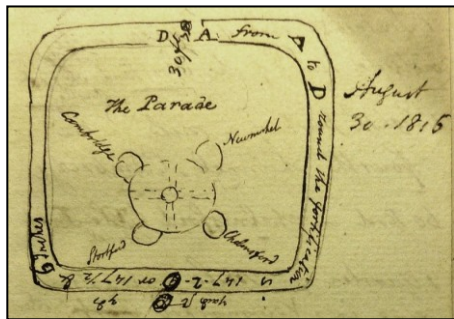 D A from A to D round the fortification is 147-2 or 147 1/2 & 6 inches
The Parade
Cambridge
Newmrket
Stortford
Chelmsford
August
30 - 1815